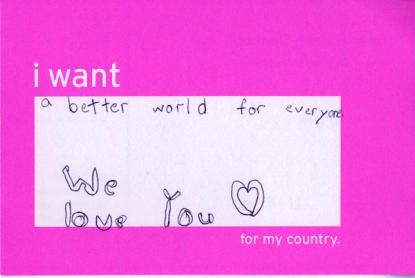 i want
a better world for everyone
We
love You
for my country.